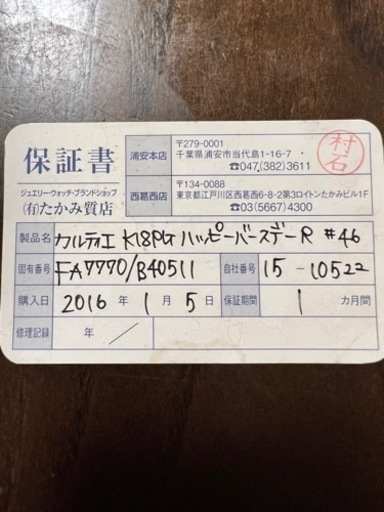 保証書
ジュエリー・ウォッチ・ブランドショップ
(有)たかみ質店
浦安本店
〒279-0001
千葉県浦安市当代島1-16-7
☎047,(382)3611
西葛西店
〒134-0088
東京都江戸川区西葛西6-8-2第3ロイトンたかみビル1F
☎03(5667)4300
村石
製品名 カルティエ K18PG ハッピーバースデーR #46
固有番号 FA7770/B40511 自社番号 15-10522
購入日 2016年 1月 5日 保証期間 1 カ月間
修理記録 年 /